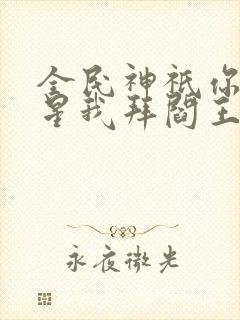 全民神祇你
星我拜阎王
永夜微光